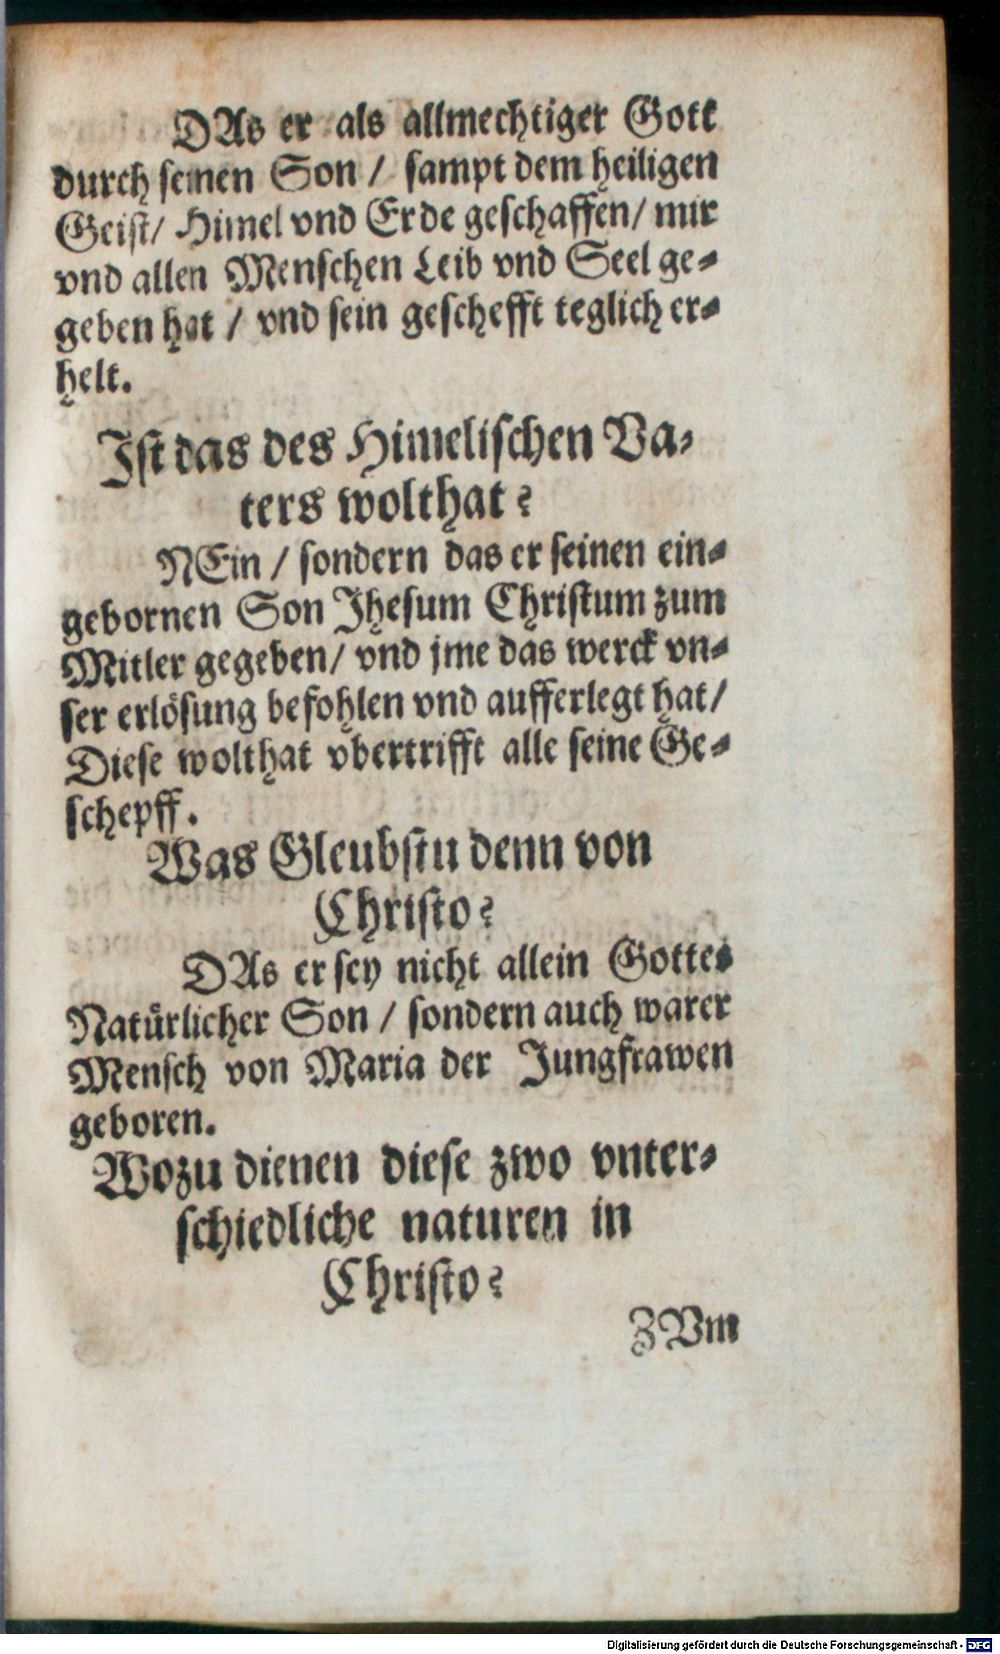 DAs er als allmechtiger Gott
durch seinen Son / sampt dem heiligen
Geist/ Himel vnd Erde geschaffen/ mir
vnd allen Menschen Leib vnd Seel ge-
geben hat / vnd sein geschefft teglich er-
helt.
Ist das des Himelischen Va-
ters wolthat?
NEin / sondern das er seinen ein-
gebornen Son Jhesum Christum zum
Mitler gegeben/ vnd jme das werck vn-
ser erlösung befohlen vnd aufferlegt hat/
Diese wolthat vbertrifft alle seine Ge-
schepff.
Was Gleubstu denn von
Christo?
DAs er sey nicht allein Gottes
Natürlicher Son / sondern auch warer
Mensch von Maria der Jungfrawen
geboren.
Wozu dienen diese zwo vnter-
schiedliche naturen in
Christo?
ZVm
Digitalisierung gefördert durch die Deutsche Forschungsgemeinschaft - DFG